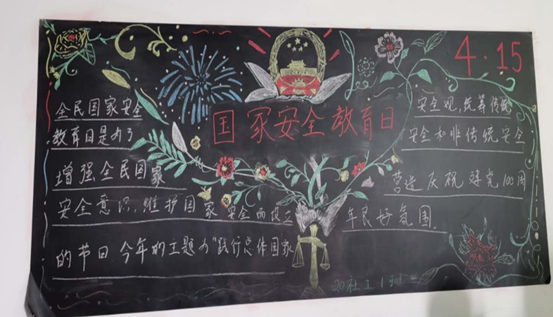 4·15
国家安全教育日
全民国家安全
教育日是为了
增强全民国家
安全意识,维护国家安全而设立
的节日 今年的主题为"践行总体国家
安全观,统筹传统
安全和非传统安全
营造庆祝建党100周
年良好氛围